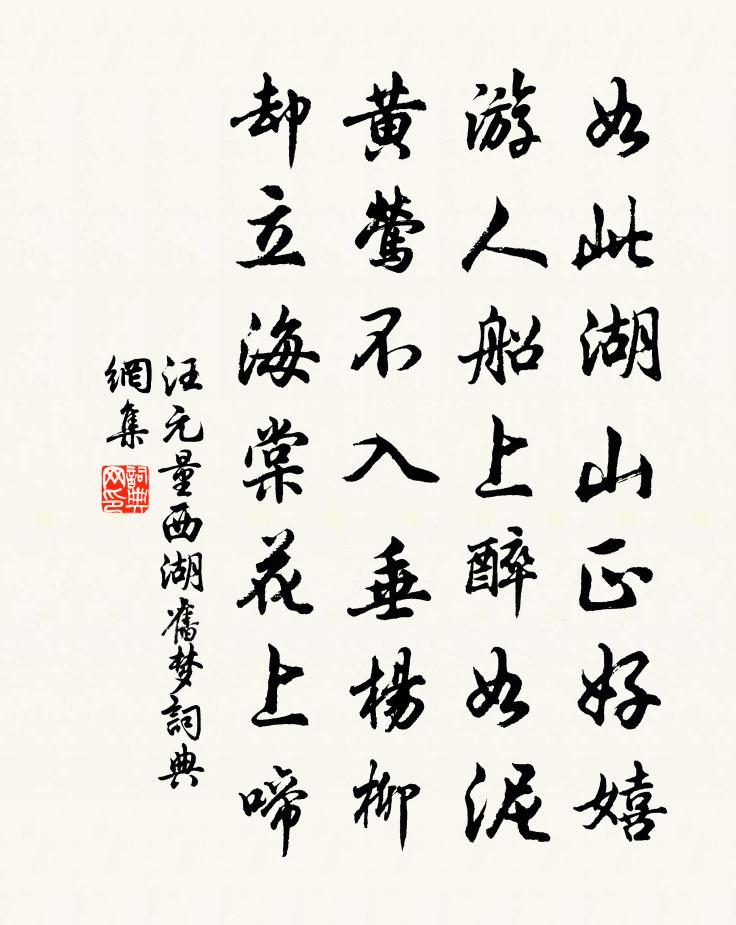 如此湖山正好嬉
游人船上醉如泥
黄鶯不入垂楊柳
却立海棠花上啼
汪元量西湖舊梦詞典
網集
詞典
网印